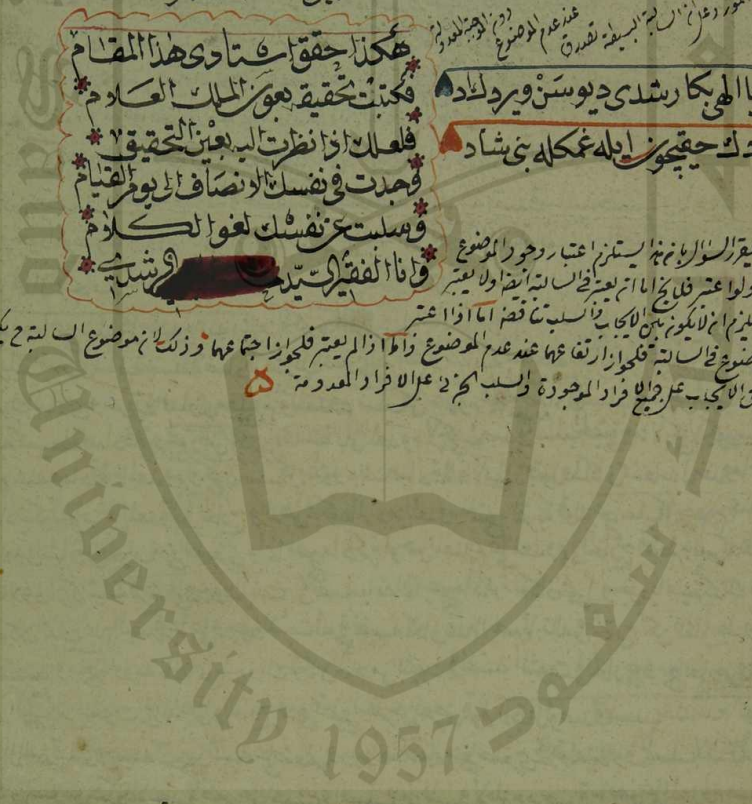 هكذا حقق استادى هذا المقام
فكتبت تحقيقه بعون الملك العلام
فلعلك اذا نظرت اليه بعين التحقيق
وجدت فى نفسك الانصاف الى يوم القيام
وسلبت عن نفسك لغو الكلام
وانا الفقير السيد الرشدي
السالبة البسيطة تصدق عند عدم الموضوع
دون الموجبة المعدولة
الهى بكا رشدى ديو سن ويردك اد
حقيچون ايله غمكله بنى شاد
السؤال بانه يستلزم اعتبار وجود الموضوع
ولو اعتبر فلا يخ اما ان يعتبر فى السالبة ايضا اولا يعتبر
يلزم ان لا يكون بين الايجاب والسلب تناقض اما اذا اعتبر
فى السالبة فلجواز ارتفاعهما عند عدم الموضوع واما اذا لم يعتبر فلجواز اجتماعهما وذلك لان موضوع السالبة ح
الايجاب على جميع الافراد الموجودة والسلب الجزئى على الافراد المعدومة
University 1957 سعود